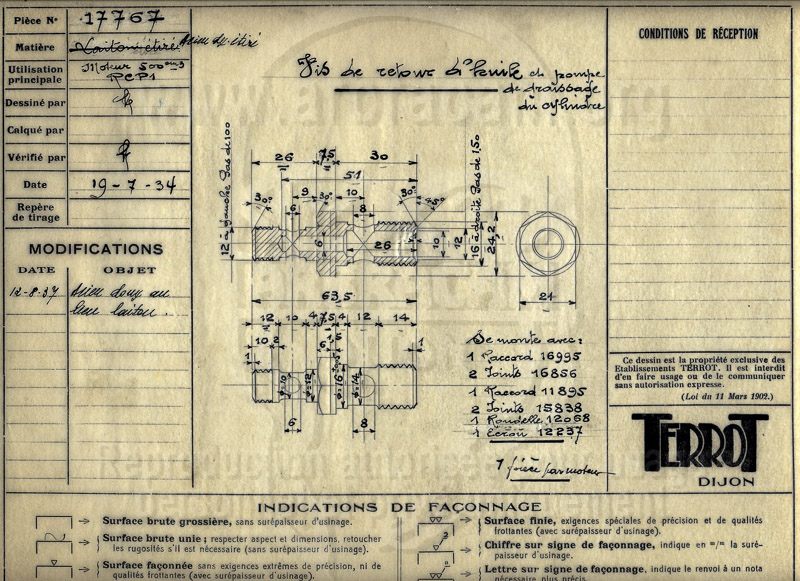 Pièce N° 17767
Matière Laiton étiré Acier dx étiré
Utilisation principale Moteur 500 cm3
RCP1
Dessiné par
Calqué par
Vérifié par
Date 19-7-34
Repère de tirage
MODIFICATIONS
DATE OBJET
12-8-37 Acier doux au
lieu laiton.
Vis de retour d'huile et pompe
de graissage
du cylindre
12 à gauche pas de 100
26 7,5 30
51
16 à droite pas de 1,50
30° 9 30° 10 30° 45°
6 8
6 26 10 12 24,2
63,5 21
12 10 4 7,5 4 12 14
10 2 6
1 1
6 8
Se monte avec:
1 Raccord 16995
2 Joints 16856
1 Raccord 11895
2 Joints 15838
1 Rondelle 12068
1 Ecrou 12237
1 pièce par moteur
CONDITIONS DE RÉCEPTION
Ce dessin est la propriété exclusive des
Etablissements TERROT. Il est interdit
d'en faire usage ou de le communiquer
sans autorisation expresse.
(Loi du 11 Mars 1902.)
TERROT
DIJON
INDICATIONS DE FAÇONNAGE
Surface brute grossière, sans surépaisseur d'usinage.
Surface brute unie; respecter aspect et dimensions, retoucher
les rugosités s'il est nécessaire (sans surépaisseur d'usinage).
Surface façonnée sans exigences extrêmes de précision, ni de
qualités frottantes (avec surépaisseur d'usinage).
Surface finie, exigences spéciales de précision et de qualités
frottantes (avec surépaisseur d'usinage).
Chiffre sur signe de façonnage, indique en =/= la suré-
paisseur d'usinage.
Lettre sur signe de façonnage, indique le renvoi à un nota
nécessaire plus précis.